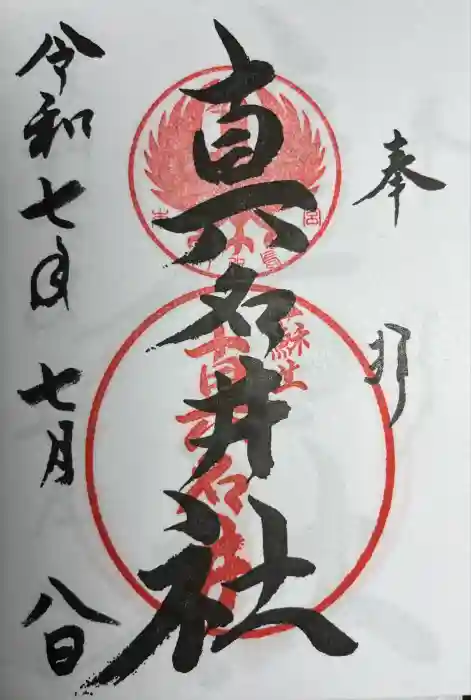 奉拝
真名井社
令和七年 七月 八日